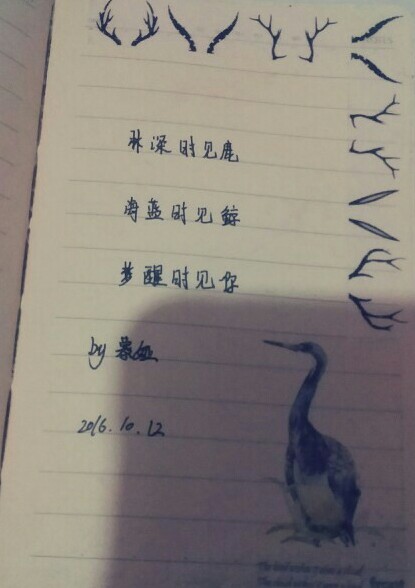 林深时见鹿
海蓝时见鲸
梦醒时见你
by
2016.10.12